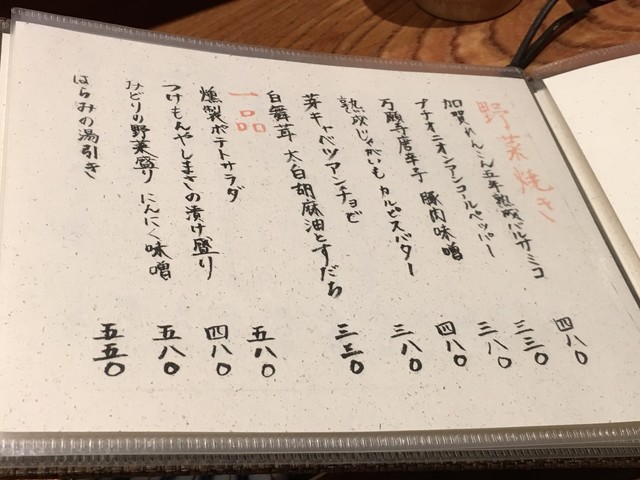 野菜焼き
加賀れんこん五年熟成バルサミコ 四八〇
プチオニオンアンコールペッパー 三三〇
万願寺唐辛子 豚肉味噌 三八〇
熟成じゃがいも カルピスバター 四八〇
芽キャベツアンチョビ 三八〇
白舞茸 太白胡麻油とすだち 三三〇
一品
燻製ポテトサラダ 五八〇
つけもんやしまさきの漬け盛り 四八〇
みどりの野菜盛り にんにく味噌 五八〇
はらみの湯引き 五五〇